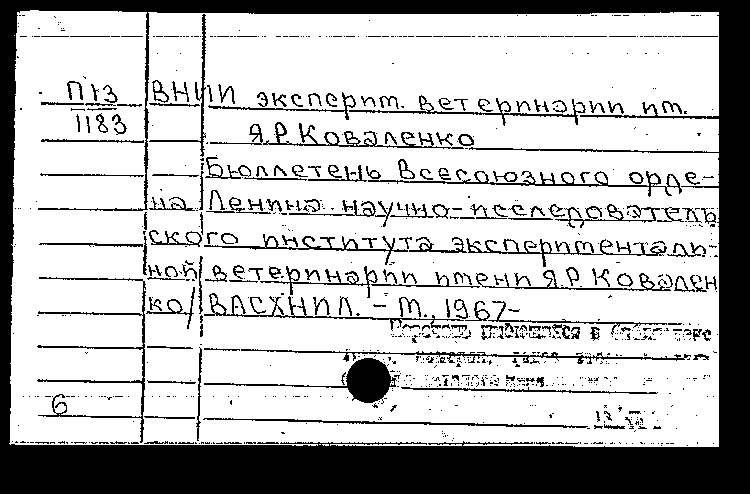 П13 ВНИИ эксперим. ветеринарии им.
1183 Я.Р. Коваленко
Бюллетень Всесоюзного орде-
на Ленина научно-исследователь
ского института эксперименталь-
ной ветеринарии имени Я.Р. Ковален
ко/ ВАСХНИЛ. - М., 1967-
6